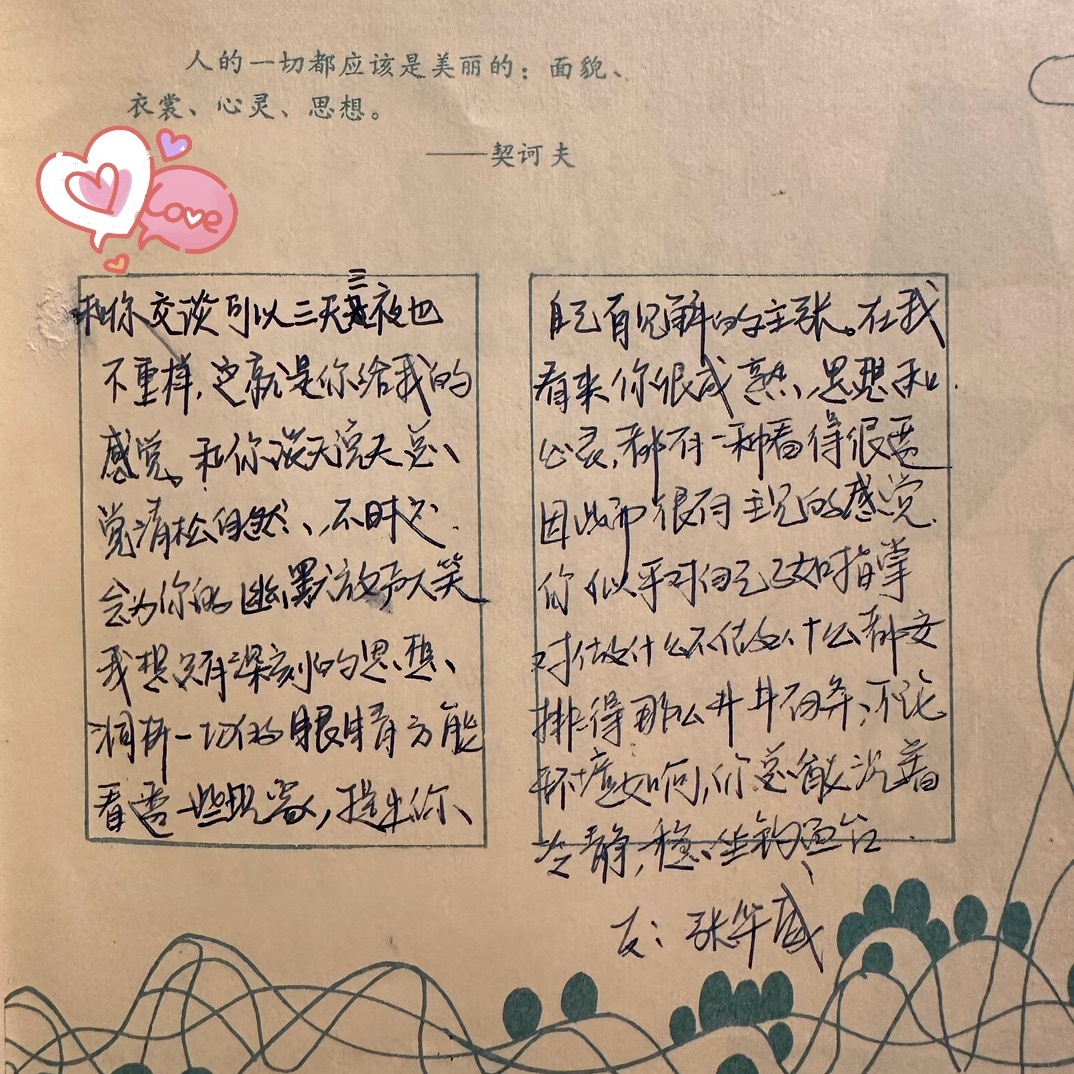 人的一切都应该是美丽的：面貌、
衣裳、心灵、思想。
——契诃夫
Love
和你交谈可以三天三夜也
不重样，这就是你给我的
感觉。和你谈天说天总
觉清松自然、不时之
会为你的幽默放声大笑
我想只有深刻的思想、
洞析一切的眼睛方能
看透一些现象，提出你、
自己有见解的主张。在我
看来你很成熟、思想和
心灵，都有一种看得很透
因此而很有主见的感觉.
你似乎对自己了如指掌
对做什么不做什么都安
排得那么井井有条，不论
环境如何，你总能沉着
冷静，稳坐钓鱼台.
友：张华威